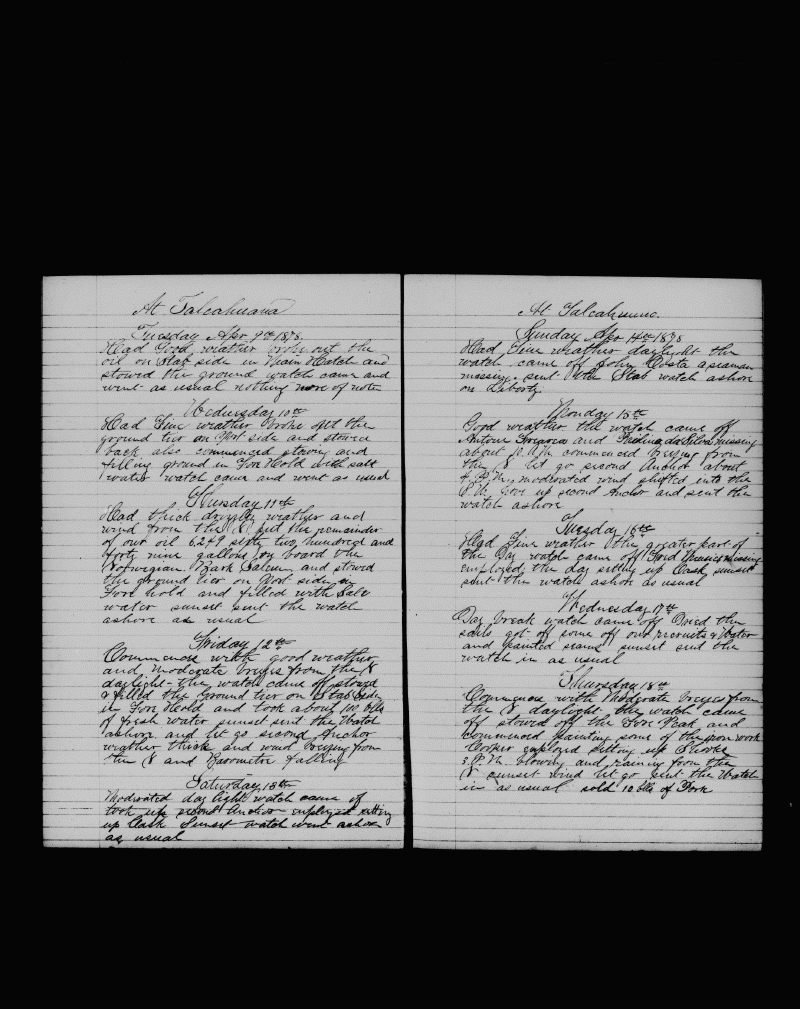 At Talcahuana
Tuesday Apr 9th 1878.
Had Good weather broke out the
oil on Stab side in Main Hatch and
stowed the ground watch came and
went as usual nothing more of note
Wednesday 10th
Had Fine weather broke out the
ground tier on Port side and stowed
back also commenced stowing and
filling ground in Fore Hold with salt
water watch came and went as usual
Thursday 11th
Had thick drizzly weather and
wind from the N put the remainder
of our oil 6249 sixty two hundred and
forty nine gallons on board the
Norwegian Bark and stowed
the ground tier on Port side in
Fore hold and filled with Salt
water sunset sent the watch
ashore as usual
Friday 12th
Commences with good weather
and moderate breezes from the N
daylight the watch came off stowed
& filled the Ground tier on Stab side
in Fore Hold and took about 100 bbls
of fresh water sunset sent the Watch
ashore and let go second Anchor
weather thick and wind breezing from
the N and Barometer falling
Saturday 13th
Moderated day light watch came of
took up second Anchor employed setting
up Cask Sunset watch went ashore
as usual
At Talcahuano.
Sunday Apr 14th 1878
Had Fine weather daylight the
watch came off John Costa a seaman
missing. sent the Stab watch ashore
on Liberty
Monday 15th
Good weather the watch came off
Antone and da Silva missing
about 10 A.M. commenced breezing from
the N. let go second Anchor about
4 P.M. moderated wind shifted into the
S.W. hove up second Anchor and sent the
watch ashore
Tuesday 16th
Had Fine weather the greater part of
the Day watch came off missing
employed the day setting up Cask sunset
sent the watch ashore as usual
Wednesday 17th
Day break watch came off Dried the
sails got off some of our recruits & Water
and painted sunset sent the
watch in as usual
Thursday 18th
Commences with Moderate breezes from
the N daylight the watch came
off stowed off the Fore Peak and
commenced painting some of the iron work
Cooper employed setting up Shooks
3 P.M. blowing and raining from the
N. sunset wind let go sent the Watch
in as usual sold 10 bbls of Pork